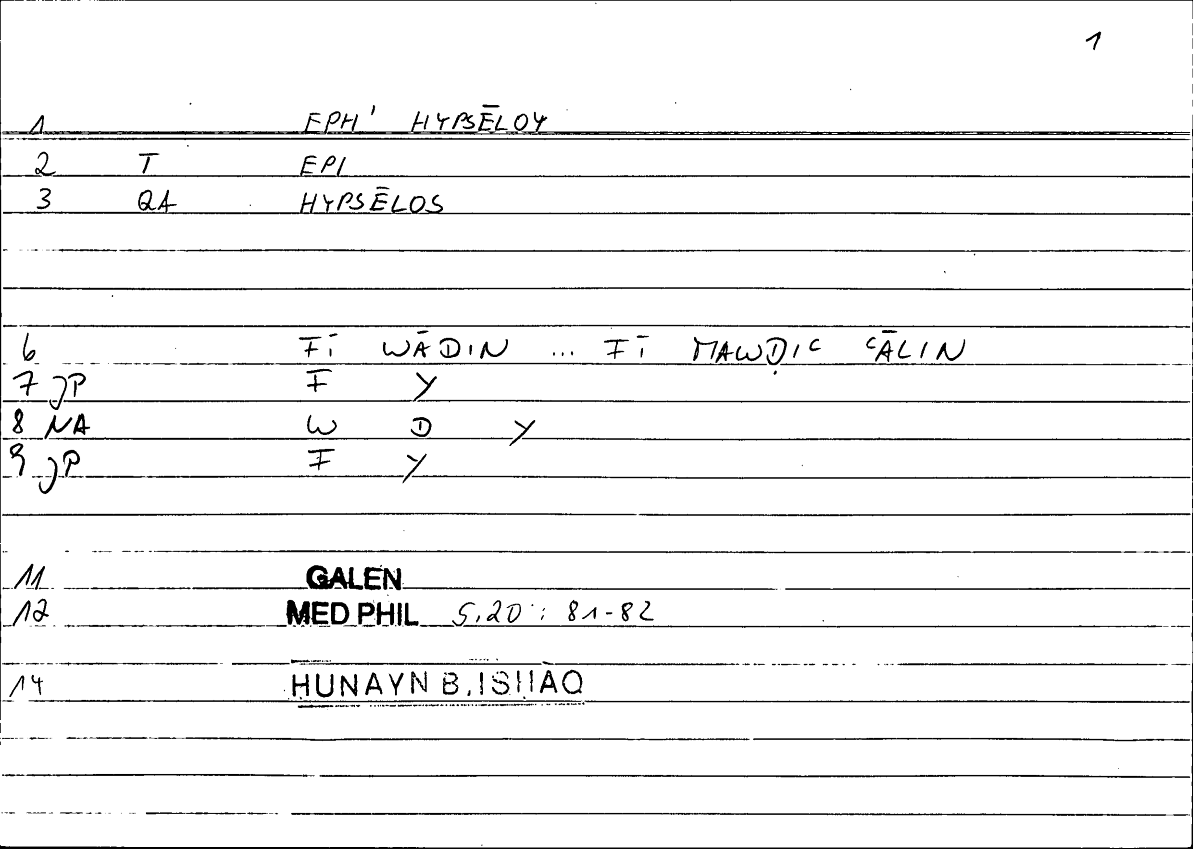 1
1 EPH' HYPSĒLOY
2 T EPI
3 QA HYPSĒLOS
6 FĪ WĀDIN ... FĪ MAWḌIᶜ ᶜĀLIN
7 JP F Y
8 NA W D Y
9 JP F Y
11 GALEN
12 MED PHIL 5,20 : 81-82
14 ḤUNAYN B. ISḤĀQ